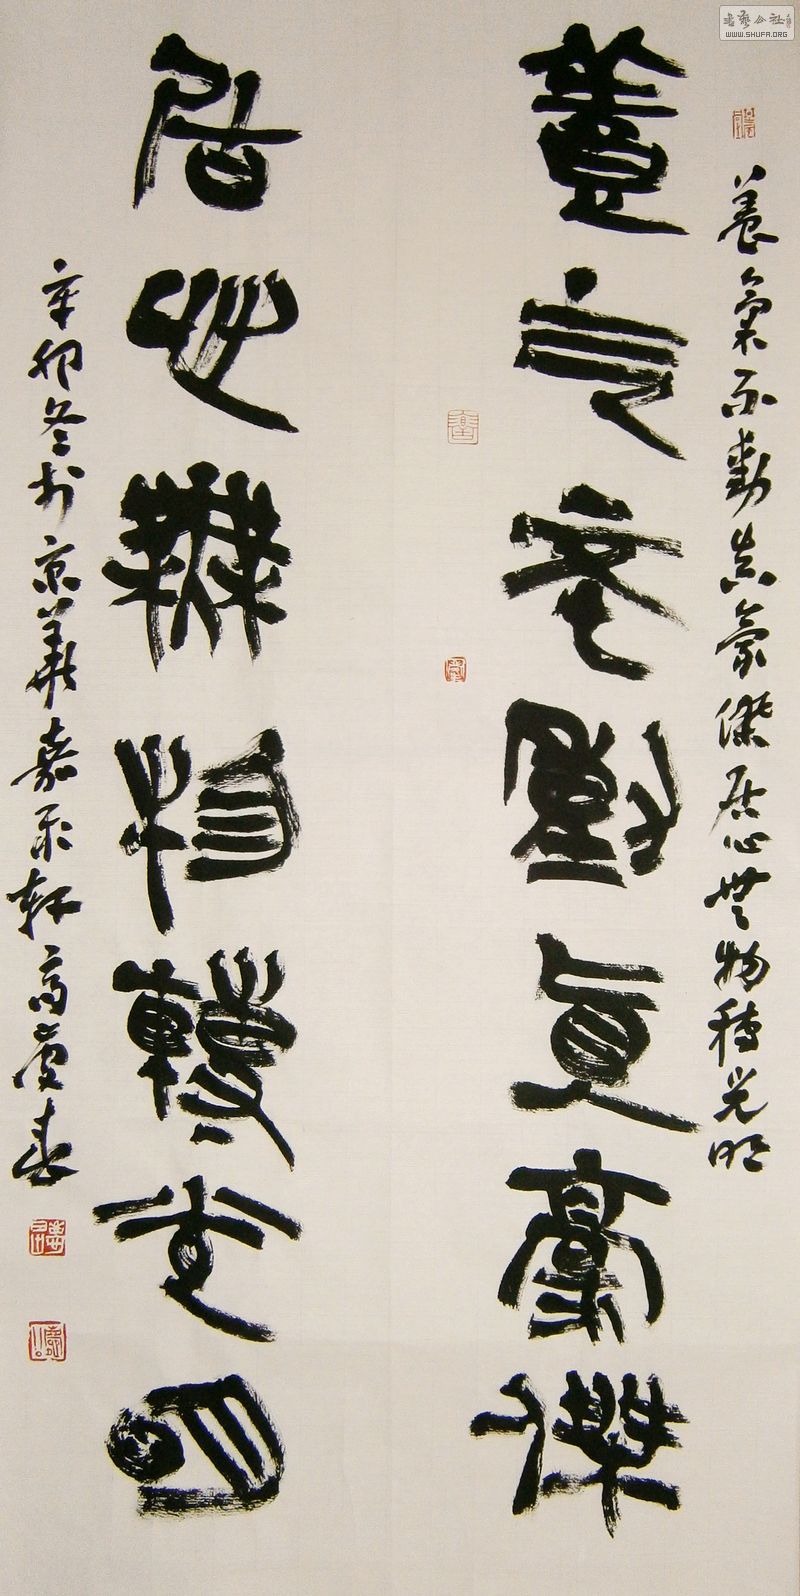 WWW.SHUFA.ORG
養氣不動真豪傑居心無物轉光明
養气不動真豪傑
居心無物轉光明
辛卯冬於京華嘉軒高慶春